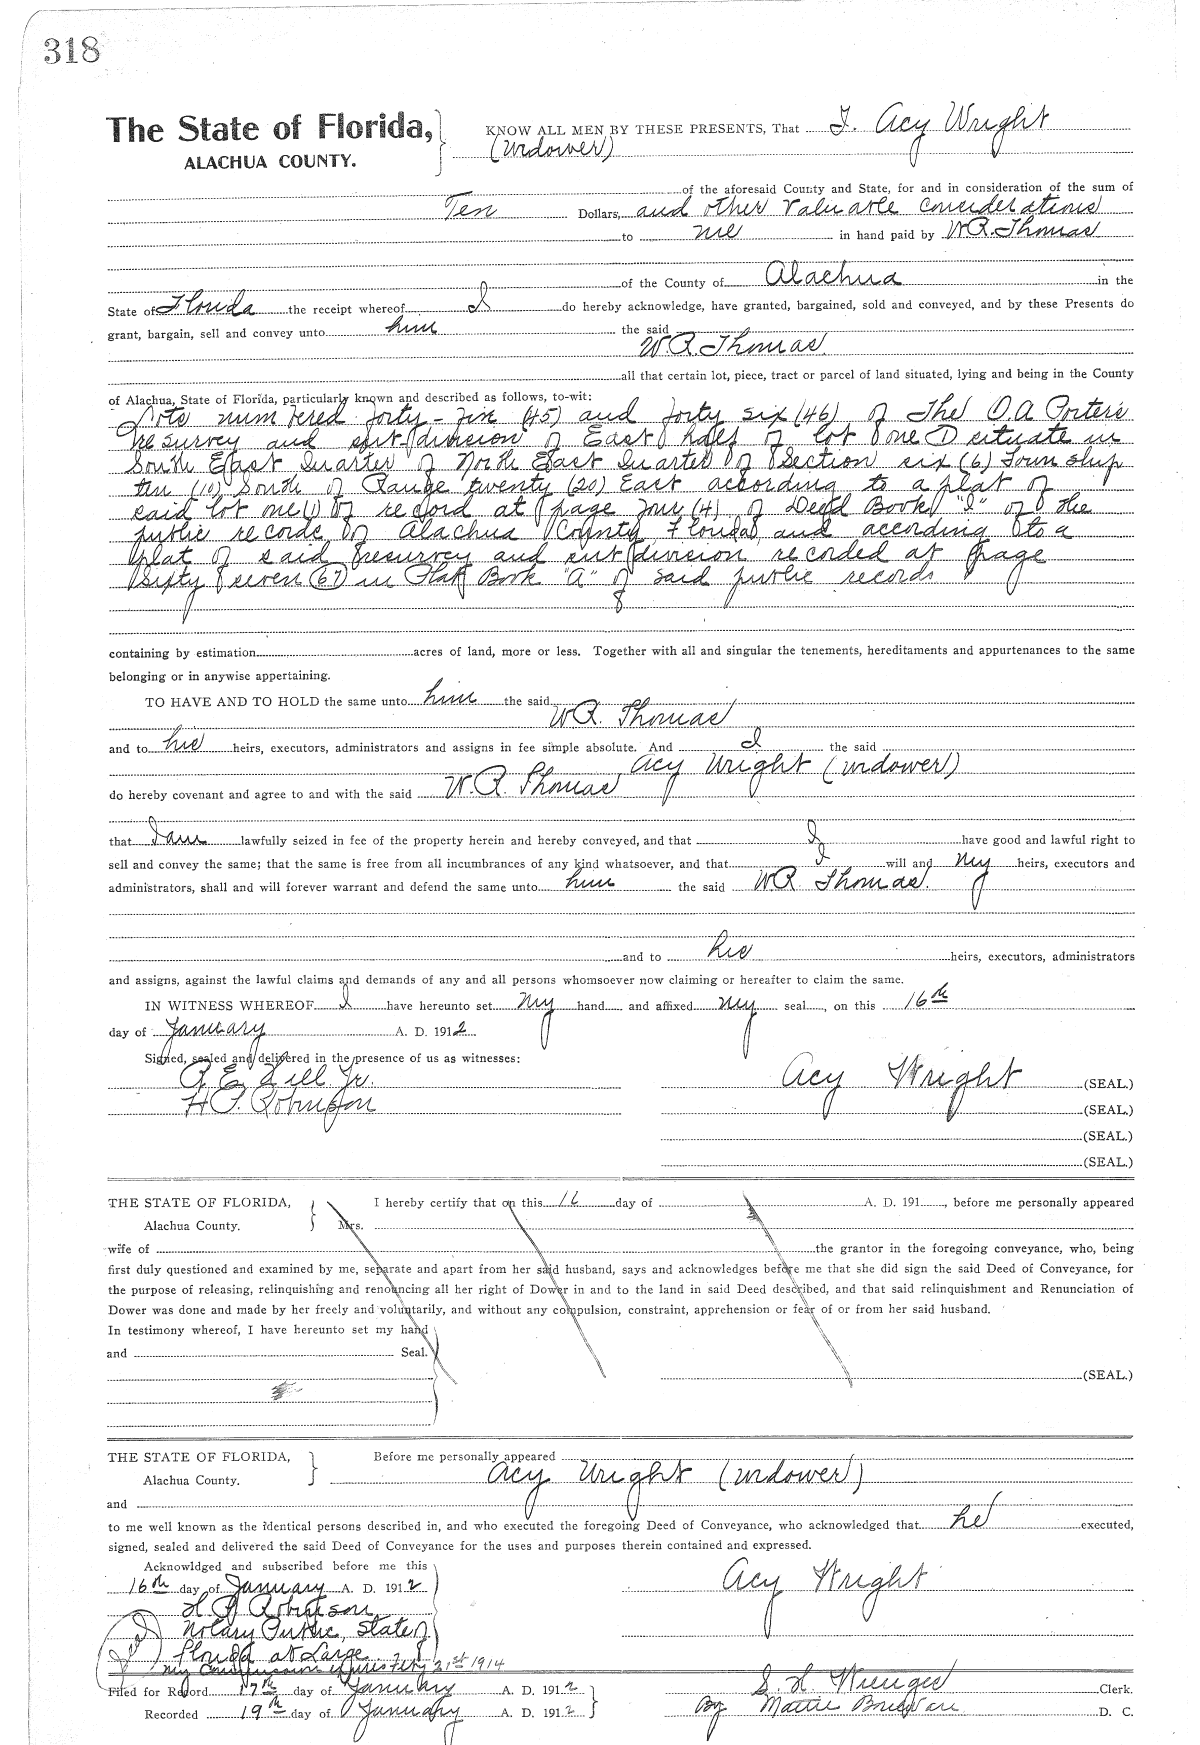 318
The State of Florida,
ALACHUA COUNTY.
KNOW ALL MEN BY THESE PRESENTS, That I. Acy Wright
(widower)
of the aforesaid County and State, for and in consideration of the sum of
Ten Dollars, and other valuable considerations
to me in hand paid by W.R. Thomas
of the County of Alachua in the
State of Florida the receipt whereof I do hereby acknowledge, have granted, bargained, sold and conveyed, and by these Presents do
grant, bargain, sell and convey unto him the said
W.R. Thomas
all that certain lot, piece, tract or parcel of land situated, lying and being in the County
of Alachua, State of Florida, particularly known and described as follows, to-wit:
Lots numbered forty-five (45) and forty six (46) of The O.A. Porter's
resurvey and subdivision of East half of lot one (1) situate in
South East Quarter of North East Quarter of Section six (6) Township
ten (10) South of Range twenty (20) East according to a plat of
said lot one (1) of record at page four (4) of Deed Book "I" of the
public records of Alachua County, Florida, and acording to a
plat of said resurvey and subdivision recorded at page
Sixty seven (67) in Plat Book "A" of said public records
containing by estimation acres of land, more or less. Together with all and singular the tenements, hereditaments and appurtenances to the same
belonging or in anywise appertaining.
TO HAVE AND TO HOLD the same unto him the said
W.R. Thomas
and to his heirs, executors, administrators and assigns in fee simple absolute. And I the said
Acy Wright (widower)
do hereby covenant and agree to and with the said W.R. Thomas
that I am lawfully seized in fee of the property herein and hereby conveyed, and that I have good and lawful right to
sell and convey the same; that the same is free from all incumbrances of any kind whatsoever, and that I will and my heirs, executors and
administrators, shall and will forever warrant and defend the same unto him the said W.R. Thomas.
and to his heirs, executors, administrators
and assigns, against the lawful claims and demands of any and all persons whomsoever now claiming or hereafter to claim the same.
IN WITNESS WHEREOF I have hereunto set my hand and affixed my seal, on this 16th
day of January A. D. 1912
Signed, sealed and delivered in the presence of us as witnesses:
Jr.
H. Robinson
Acy Wright (SEAL.)
(SEAL.)
(SEAL.)
(SEAL.)
THE STATE OF FLORIDA,
Alachua County.
I hereby certify that on this 16 day of A. D. 191, before me personally appeared
Mrs.
wife of the grantor in the foregoing conveyance, who, being
first duly questioned and examined by me, separate and apart from her said husband, says and acknowledges before me that she did sign the said Deed of Conveyance, for
the purpose of releasing, relinquishing and renouncing all her right of Dower in and to the land in said Deed described, and that said relinquishment and Renunciation of
Dower was done and made by her freely and voluntarily, and without any compulsion, constraint, apprehension or fear of or from her said husband.
In testimony whereof, I have hereunto set my hand
and Seal.
(SEAL.)
THE STATE OF FLORIDA,
Alachua County.
Before me personally appeared
Acy Wright (widower)
and
to me well known as the identical persons described in, and who executed the foregoing Deed of Conveyance, who acknowledged that he executed,
signed, sealed and delivered the said Deed of Conveyance for the uses and purposes therein contained and expressed.
Acknowldged and subscribed before me this
16th day of January A. D. 1912
Acy Wright
H. Robinson
Notary Public, State of
Florida at Large
My Commission expires Feby 21st 1914
Filed for Record 17th day of January A. D. 1912
Recorded 19th day of January A. D. 1912
S. H. Wienges Clerk.
By Mattie D. C.